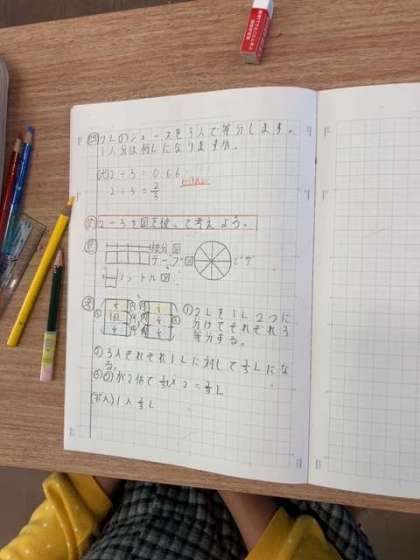 問 2Lのジュースを3人で等分します。
1人分は何Lになりますか。
式 2÷3=0.66
2÷3=2/3
め 2÷3を図を使って考えよう。
線分図
テープ図
ピザ
リットル図
① 2Lを1L2つに
分けてそれぞれ3
等分する。
② 3人それぞれ1Lに対して1/3Lにな
る。
③ ②が2倍で1/3×2=2/3L
答え)1人2/3L